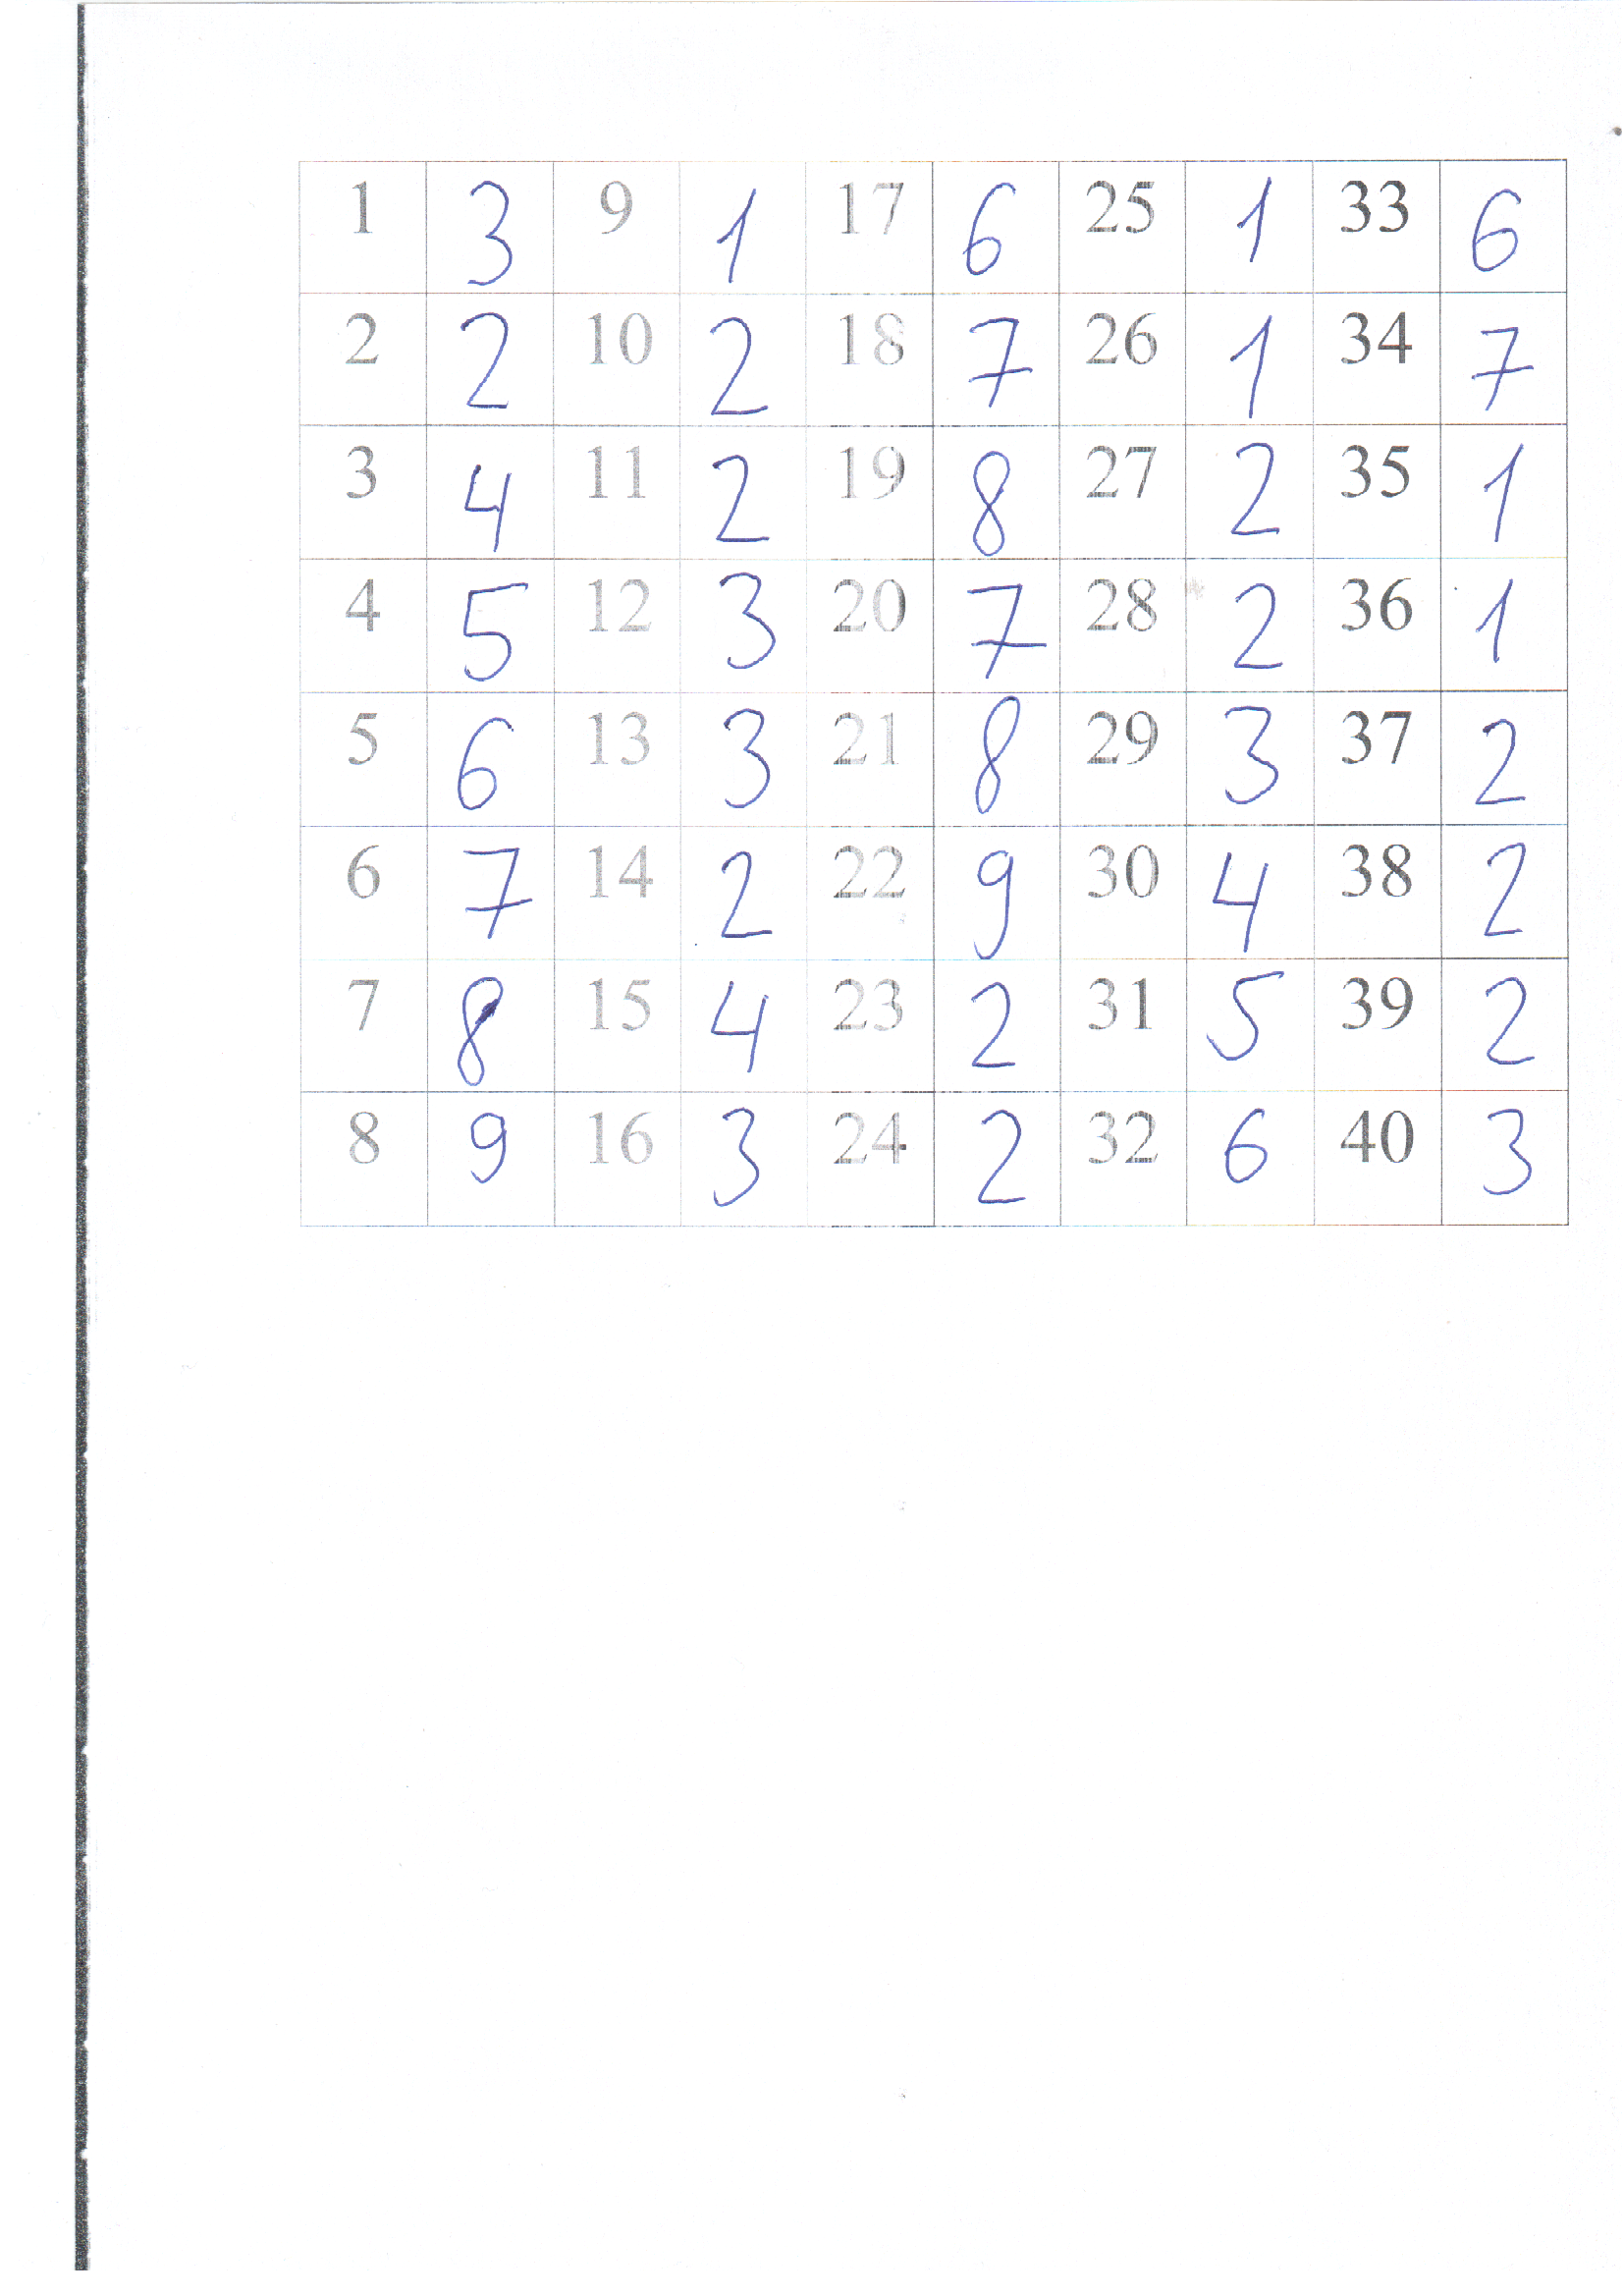 1 3 9 1 17 6 25 1 33 6
2 2 10 2 18 7 26 1 34 7
3 4 11 2 19 8 27 2 35 1
4 5 12 3 20 7 28 2 36 1
5 6 13 3 21 8 29 3 37 2
6 7 14 2 22 9 30 4 38 2
7 8 15 4 23 2 31 5 39 2
8 9 16 3 24 2 32 6 40 3